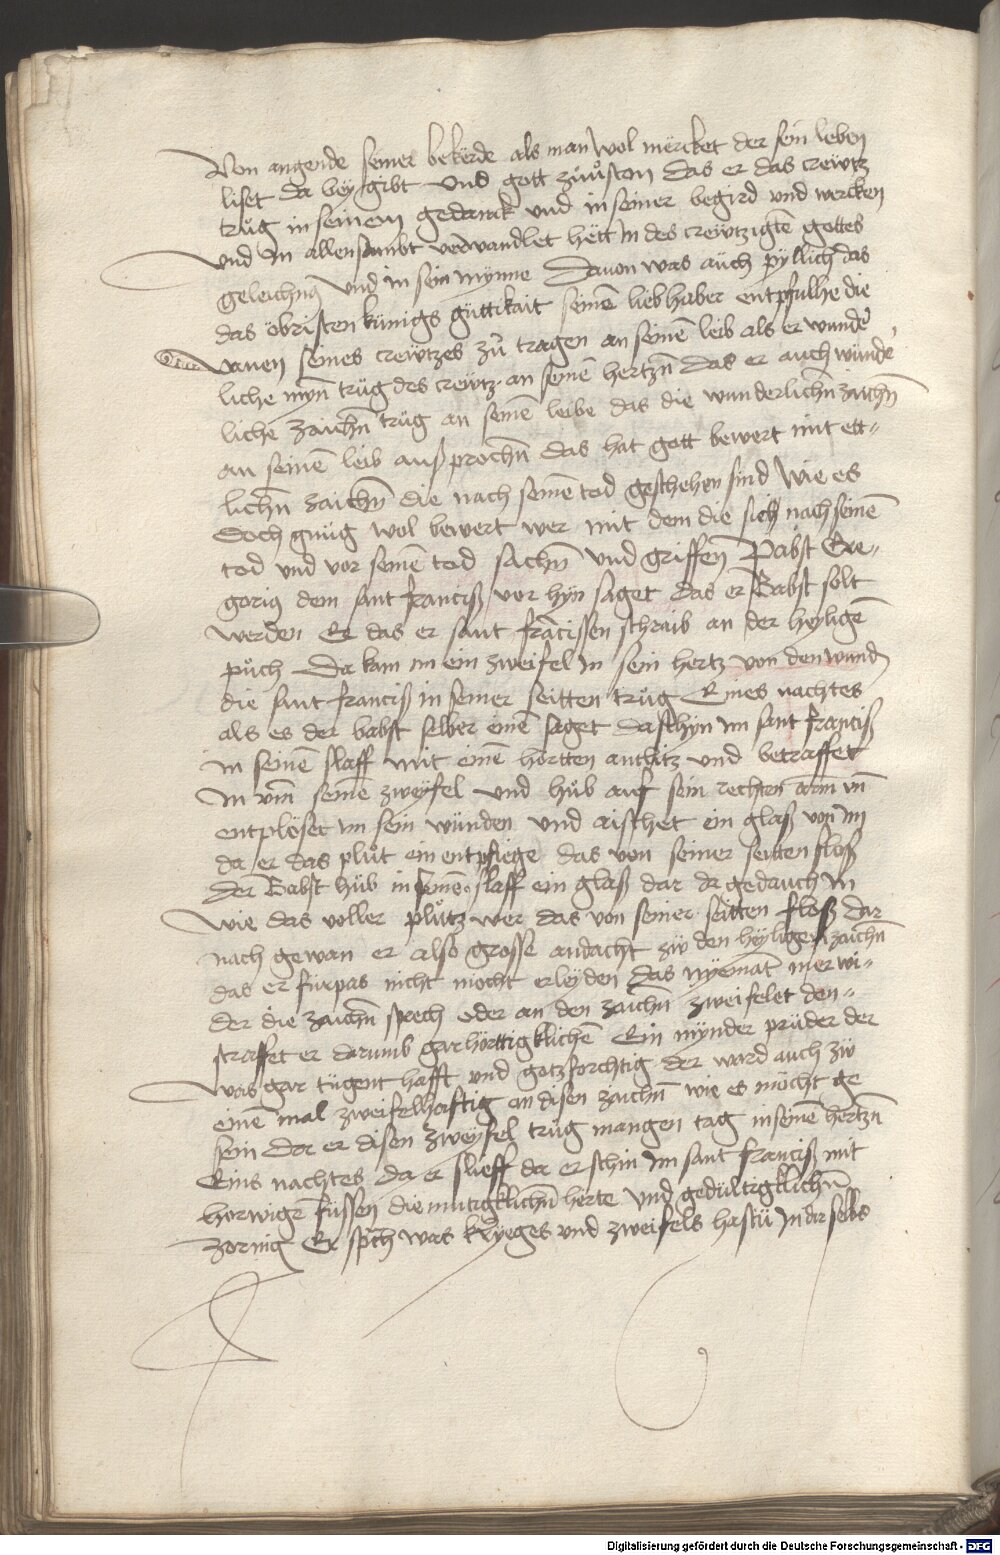 Von angende seiner bekërde als man wol mërcket der sein leben
liset da bey gibt Und gott zuͦ das er das creẅtz
truͤg in seinem gedanck und in seiner begird und wercken
und In allensambt verwandlet hëtt in des creẅtzigtē gottes
geleichnuß Und in sein mynne Dauon was auch pyllich das
das öbristen künigs güttikait seinē liebhaber entpfulhe die
vanen seines creẅtzes zů tragen an seinē leib als er wunder
liche myn trüg des creẅtz an seinē hertzn̄ das er auch wünder
liche zaichn̄ trüg an seinē leibe das die wunderlichn̄ zaichn̄
an seinē leib außprochn̄ das hat gott bewert mit ett-
lichn̄ zaichn̄ die nach seinē tod geschehen sind wie es
Doch gnüg wol bewert wer mit dem die sich nach seinē
tod und vor seinē tod sachn̄ und griffen Pabst Gre-
gorig dem sant franciß vor hyn saget das er Babst solt
werden Ee das er sant francissen schraib an der heyligē
puͦch Da kam im ein zweifel in sein hertz von den wundn̄
die sant franciß in seiner seitten truͦg Eines nachtes
als es der babst selber einē saget da schyn im sant franciß
in seinē slaff mit einē hortten antlitz und betraffet
In vm̄ seinē zweyfel und huͦb auf sein rechten arm vn̄
entplöset im sein wünden und aischet ein glaß von im
da er das pluͦt ein entpfiege das von seiner seitten floß
der Babst hüb in seinē slaff ein glaß dar da gedauch in
wie das voller pluͦtz wer das von seiner seitten floß dar
nach gewan er also grosse andacht zů den heyligen zaichn̄
das er fürpas nicht mocht erleyden das nyemāt mer wi-
der die zaichn̄ sprech oder an den zaichn̄ zweifelet den-
straffet er darumb gar hörttigklichē Ein mynder prüder der
was gar tügenthafft und gotzforchtig der ward auch zů
einē mal zweifelhafftig an disen zaichn̄ wie es möcht ge
sein Da er disen zweyfel truͦg mangen tag in seinē hertzn̄
Eins nachtes da er slieff da erschin im sant franciß mit
horwigē füssen diemutigklichn̄ herte und gedültigklichn̄
zornig Er sp̄ch was kryeges und zweifels hastu in dir selbs
Digitalisierung gefördert durch die Deutsche Forschungsgemeinschaft - DFG